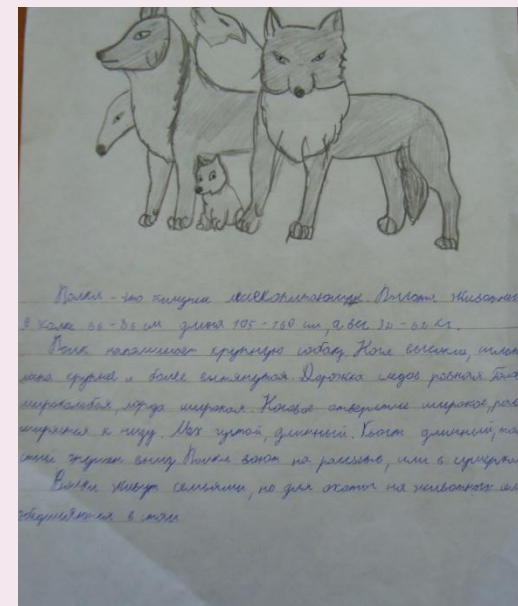 Волки - это хищные млекопитающие. Высота животного
в холке 66-86 см длина 105-160 см, а вес 32-62 кг.
Волк напоминает крупную собаку. Ноги высокие, сильн
лапа крупная и более вытянутая. Дорожка следов ровная. Голо
широколобая, морда широкая. Носовое отверстие широкое, рас
ширяется к низу. Мех густой, длинный. Хвост длинный, тол
стый опущен вниз. Волки воют на рассвете, или в сумерки
Волки живут семьями, но для охоты на животных
объединяются в стаи